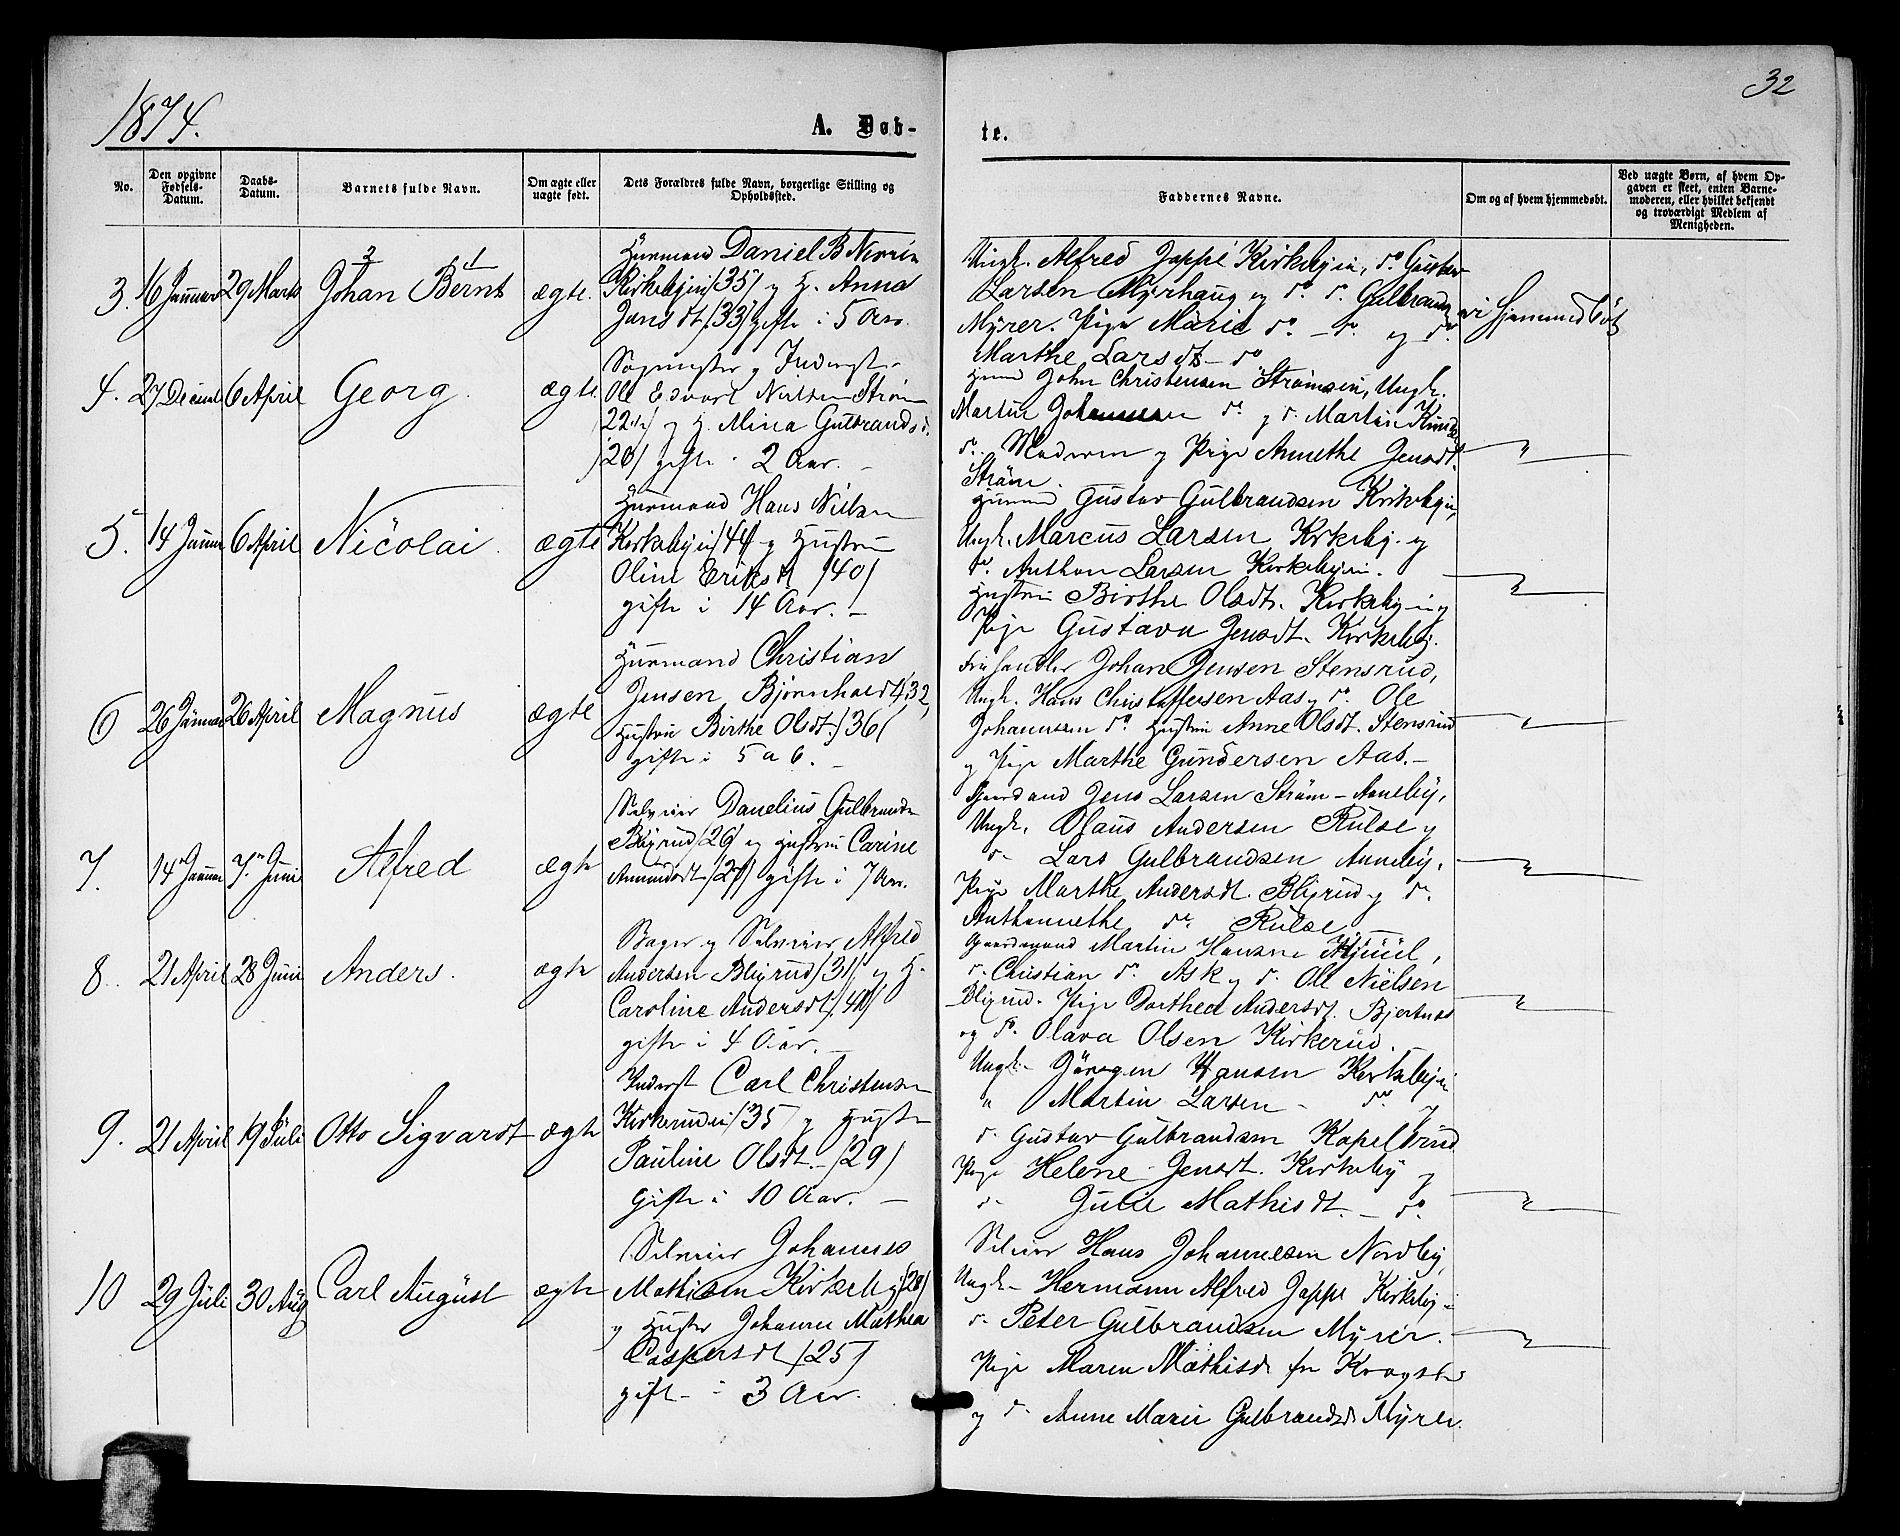 32
1874.
A. Døb-
te.
No.
Den opgivne Fødsels-Datum.
Daabs-Datum.
Barnets fulde Navn.
Om ægte eller uægte født.
Dets Forældres fulde Navn, borgerlige Stilling og Opholdssted.
Faddernes Navne.
Om og af hvem hjemmedøbt.
Ved uægte Børn, af hvem Opgaven er skeet, enten Barnemoderen, eller hvilket bekjendt og troværdigt Medlem af Menigheden.
3. 16 Januar 29 Marts Johan Bernt ægte.
2 1
Huusmand Daniel B
Kirkebyei (35) og H. Anna
Jansdt (33) gifte i 5 Aar.
Ungk. Alfred Jappe Kirkebyei, do Gustav
Larsen Myrhaug og do do Gulbrand
Myrer. Pige Marie do - do og do
Marthe Larsdt - do
ei hjemmedøbt
4. 27 Decembr 6 April Georg. ægte
Ole Edvart Nielsen Strøm
22 og H. Mina Gulbrandsd.
(20) gifte i 2 Aar. -
John Christensen Strømsei, Ungk.
Martin Johannesen do og do Martin
do Moderen og Pige Annethe Jensdt.
Strøm.
"
5. 14 Januar 6 April Nicolai. ægte
Huusmand Hans Nielsen
Kirkebyei (44) og Hustru
Oline Eriksdt (40)
gifte i 14 Aar. -
Gustav Gulbrandsen Kirkebyei,
Ungk. Marcus Larsen Kirkeby. og
do Anthon Larsen Kirkebyei.
Hustru Birthe Olsdt. Kirkebyei og
Pige Gustava Jensdt. Kirkeby.
"
6 26 Januar 26 April Magnus ægte
Huusmand Christian
Jensen Bjønnholdt, 32,
Hustru Birthe Olsdt. (36)
gifte i 5 a 6. -
Johan Jensen Stensrud,
Ungk. Hans Christoffersen Aas, do Ole
Johannesen do Hustru Anne Olsdt. Stensrud
og Pige Marthe Gundersen Aas. -
"
7. 14 Januar 7 Juni Alfred ægte
Selveier Danelius Gulbrands
Bligrud (26) og Hustru Carine
Amundsdt (29) gifte i 7 Aar.
Gaardmand Jens Larsen Strøm - Anneby,
Ungk. Olaus Andersen Rulse og
do Lars Gulbrandsen Anneby,
Pige Marthe Andersdt. Bligrud og do
Anthonethe do Rulse
"
8. 21 April 28 Juni Anders. ægte
Bager og Selveier Alfred
Andersen Bligrud (31) og H.
Caroline Andersdt (40)
gifte i 4 Aar. -
Gaardmand Martin Hansen
do Christian do Ask og do Ole Nielsen
Bligrud. Pige Dorthea Andersdt. Bjertnæs
og do Olava Olsen Kirkerud.
"
9. 21 April 19 Juli Otto Sigvardt ægte
Inderst Carl Christensen
Kirkerudei (35 og Hustr
Pauline Olsdt. - (29)
gifte i 10 Aar. -
Ungk. Jörgen Hansen Kirkebyei
" Martin Larsen - do og
do Gustav Gulbrandsen Kapelsrud
Pige Helene Jensdt. Kirkeby og
do Julie Mathisdt. - do.
"
10 29 Juli 30 Aug Carl August ægte
Selveier Johannes
Mathisen Kirkeby (28)
og Hustr Johanne Mathea
Caspersdt (25)
gift - i 3 Aar.
Selveier Hans Johannesen Nordby,
Ungk - Hermann Alfred Jappe Kirkeby -
do Peter Gulbrandsen Myrer.
Pige Maren Mathisdt fra
og do Anne Marie Gulbrandsdt Myrer.
"